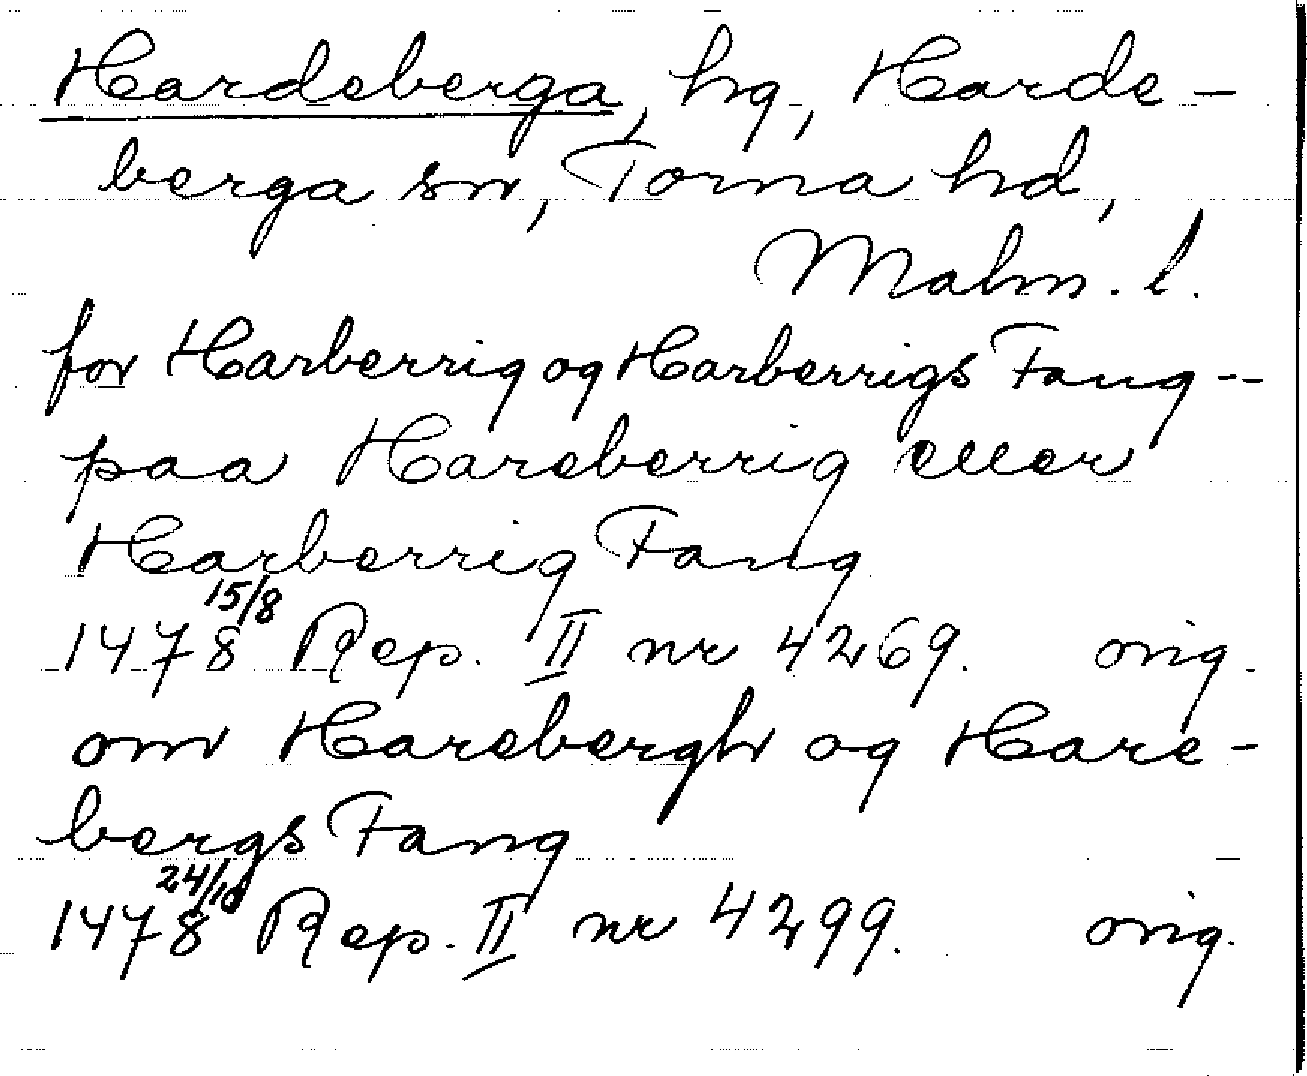 Hardeberga, hg, Harde-
berga sn, Torna hd,
Malm. l.
for Harberrig og Harberrigs Fang --
paa Hareberrig eller
Harberrig Fang
1478 15/8 Rep. II nr 4269. orig.
om Harebergh og Hare-
bergs Fang
1478 24/10 Rep. II nr 4299. orig.